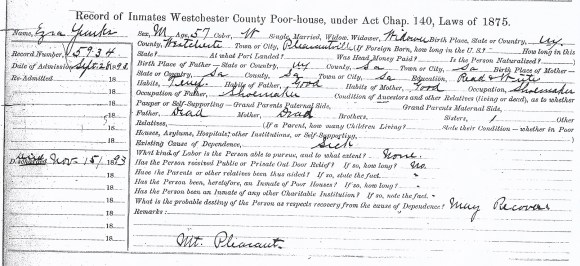 Record of Inmates Westchester County Poor-house, under Act Chap. 140, Laws of 1875.
Name, Ezra Quirks Sex, M Age, 57. Color, W Single, Married, Widow, Widower, Widower Birth Place, State or Country, NY
County, Westchester Town or City, Pleasantville If Foreign Born, how long in the U. S.? How long in this
Record Number, 5934. State? At what Port Landed? Was Head Money Paid? Is the Person Naturalized?
Date of Admission, Sept 28 1893 Birth Place of Father — State or Country, NY County, Sa Town or City, Sa Birth Place of Mother—
Re-Admitted, 18 State or Country, Sa County, Sa Town or City, Sa Education, Read & Write
18 Habits, Temp Habits of Father, Good Habits of Mother, Good Occupation, Shoemaker
18 Occupation of Father, Shoemaker Condition of Ancestors and other Relatives (living or dead), as to whether
18 Pauper or Self-Supporting — Grand Parents Paternal Side, Grand Parents Maternal Side,
18 Father, Dead Mother, Dead Brothers, Sisters, 1 Other
18 Relatives, If a Parent, how many Children Living? State their Condition — whether in Poor
18 Houses, Asylums, Hospitals, other Institutions, or Self-Supporting,
18 Existing Cause of Dependence, Sick
Nov 15 1893 What kind of Labor is the Person able to pursue, and to what extent? None.
18 Has the Person received Public or Private Out Door Relief? If so, how long? No.
18 Have the Parents or other relatives been thus aided? If so, state the fact.
18 Has the Person been, heretofore, an Inmate of Poor Houses? If so, how long?
18 Has the Person been an Inmate of any other Charitable Institution? If so, note the fact.
18 What is the probable destiny of the Person as respects recovery from the cause of Dependence? May Recover
18 Remarks:
18 Mt. Pleasant.